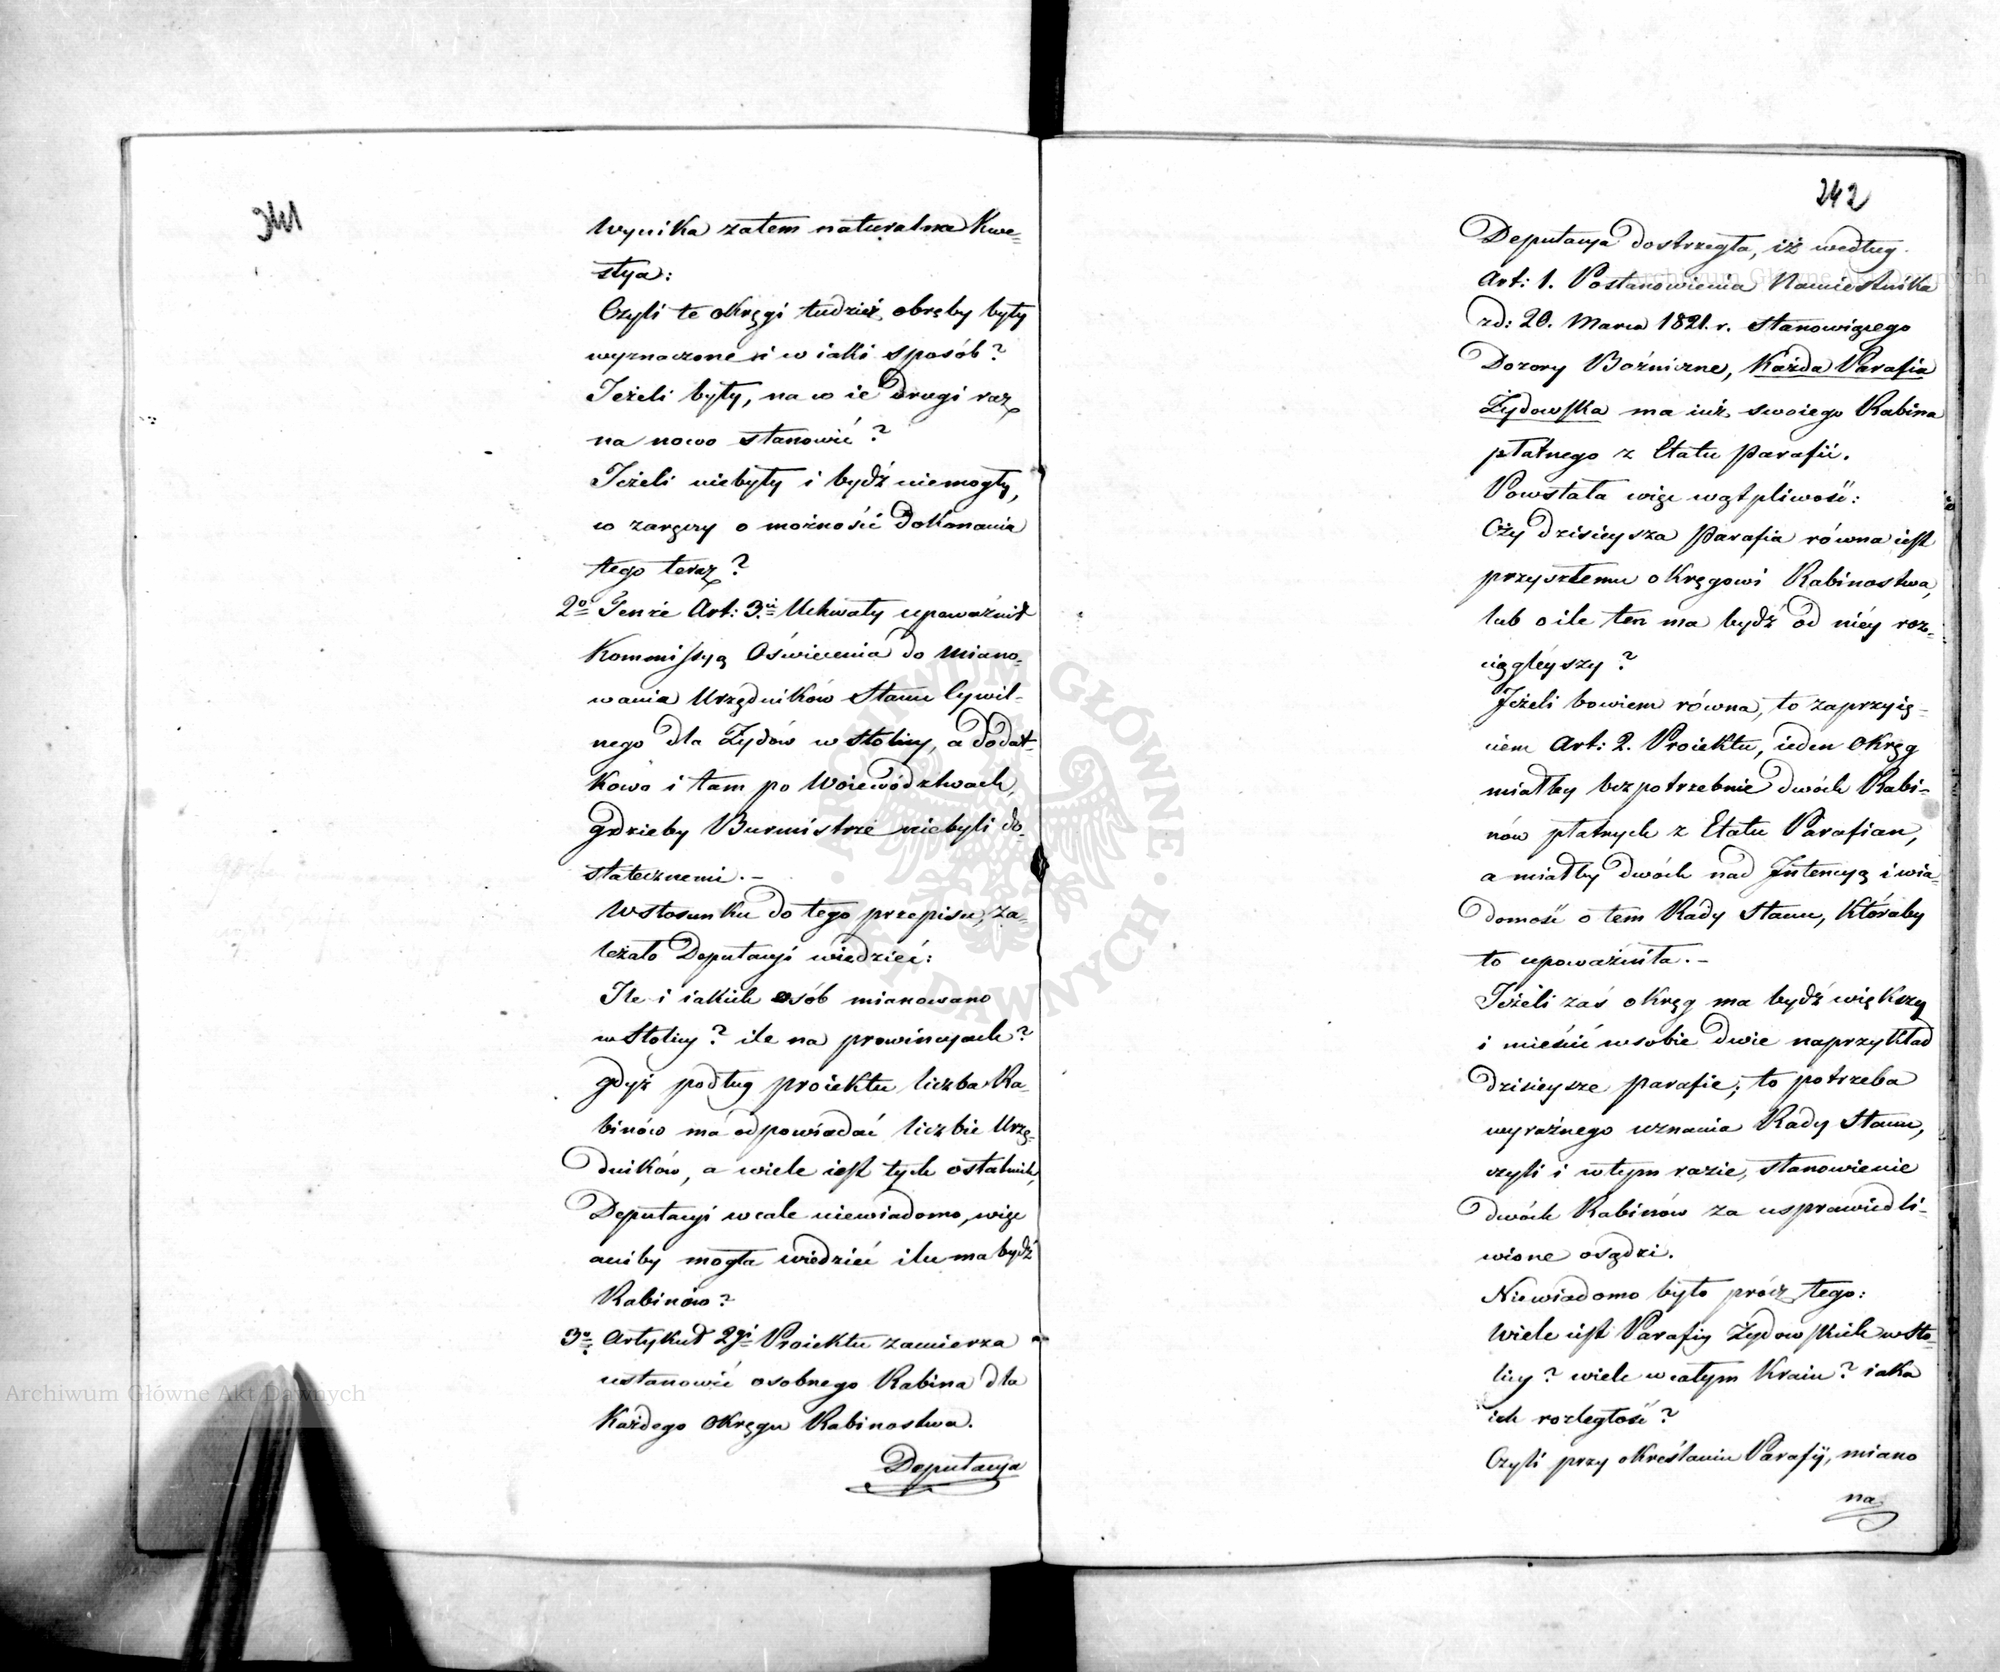 Wynika zatem naturalna Kwe-
stya:
Czyli te okręgi tudzież obręby były
wyznaczone i w iaki sposób?
Jeżeli były, na w ie drugi raz
na nowo stanowić?
Jeżeli niebyły i bydź niemogły,
w zaręczy o możności dokonania
tego teraz?
2o Tenże Art: 3.ci Uchwały upoważnił
Kommissyą Oświecenia do miano-
wania Urzędników Stanu Cywil-
nego dla Żydów w Stolicy, a dodat-
kowo i tam po Woiewództwach,
gdzieby Burmistrze niebyli do-
statecznemi.-
W stosunku do tego przepisu, za-
leżało Deputacyi wiedzieć:
Ile i iakich osób mianowano
w Stolicy? ile na prowincyach?
gdyż podług proiektu liczba Ra-
binów ma odpowiadać liczbie Urzę-
dników, a wiele iest tych ostatnich,
Deputacyi wcale niewiadomo, więc
aniby mogła wiedzieć ilu ma bydź
Rabinów?
3o Artykuł 2gi Proiektu zamierza
ustanowić osobnego Rabina dla
Każdego Okręgu Rabinostwa.
Deputacya
242
Deputacya dostrzegła, iż według
Art: 1. Postanowienia Namiestnika
zd: 20. Marca 1821. r. stanowiącego
Dozory Bożniczne, Każda Parafia
Żydowska ma iuż swoiego Rabina
płatnego z Etatu Parafii.
Powstała więc wątpliwość:
Czy dzisieysza Parafia równa iest
przyszłemu okręgowi Rabinostwa,
lub o ile ten ma bydź od niéy roz-
ciągléyszy?
Jeżeli bowiem równa, to za przyię-
ciem Art: 2. Proiektu, ieden Okręg
miałby bezpotrzebnie dwóch Rabi-
nów płatnych z Etatu Parafian,
a miałby dwóch nad Jntencyą i wia-
domość o tem Rady Stanu, któraby
to upoważniła.-
Jeżeli zaś okręg ma bydź większy
i mieścić w sobie dwie naprzykład
dzisieysze parafie, to potrzeba
wyraźnego uznania Rady Stanu,
czyli i w tym razie, stanowienie
dwóch Rabinów za usprawiedli-
wione osądzi.
Niewiadomo było prócz tego:
Wiele iest Parafiy Żydowskich w Sto-
licy? wiele w całym Kraiu? iaka
ich rozległość?
Czyli przy okreslaniu Parafiy, miano
na
Archiwum Główne Akt Dawnych
Archiwum Główne Akt Dawnych
ARCHIWUM GŁÓWNE · AKT DAWNYCH ·